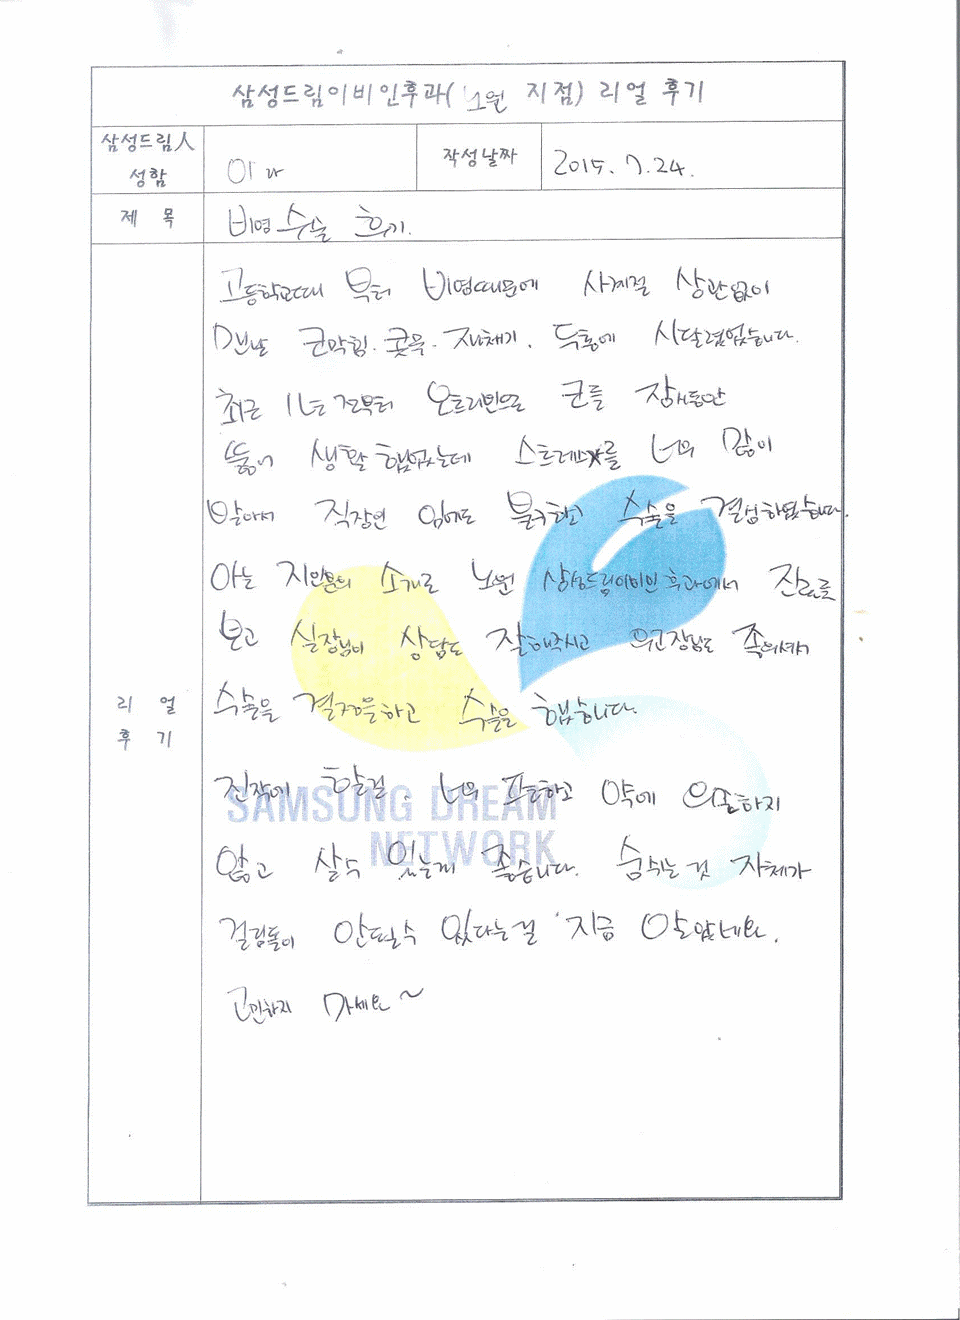 삼성드림이비인후과(노원 지점) 리얼 후기
삼성드림人
성함
이
작성날짜
2015. 7. 24.
제 목
비염 수술 후기.
고등학교때 부터 비염때문에 사계절 상관없이
맨날 코막힘. 콧물. 재채기. 두통에 시달렸었습니다.
최근 1년 전부터 오트리빈으로 코를 장시동안
뚫어 생활 했었는데 스트레스를 너무 많이
받아서 직장인 임에도 불구하고 수술을 결심하였습니다.
아는 지인분의 소개로 노원 삼성드림이비인후과에서 진료를
보고 실장님이 상담도 잘해주시고 원장님도 좋으셔서
수술을 결정을하고 수술을 했습니다.
리 얼
후 기
진작에 할걸. 너무 편하고 약에 의존하지
않고 살수 있는게 좋습니다. 숨쉬는것 자체가
걸림돌이 안될수 있다는걸 지금 알았네요.
고민하지 마세요~
SAMSUNG DREAM
NETWORK